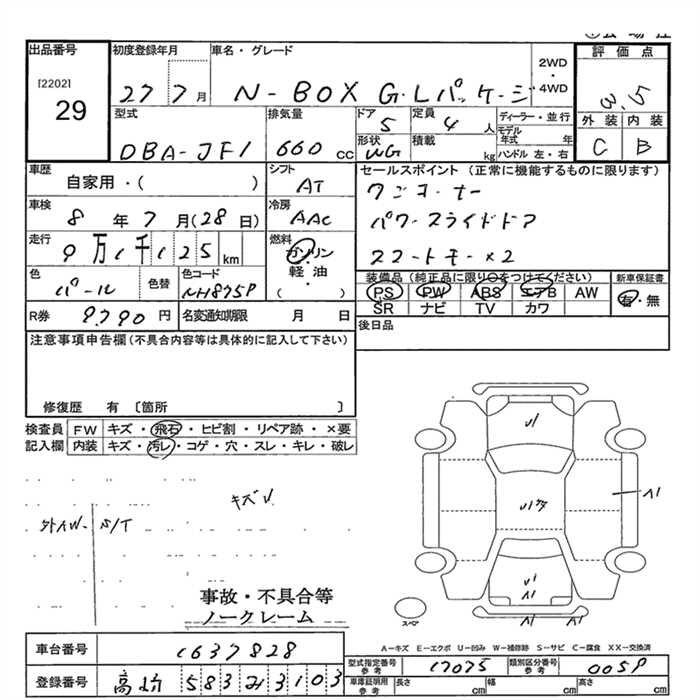 出品番号
[2202]
29
初度登録年月
27 7月
車名・グレード
N-BOX G・Lパッケージ
2WD
・
4WD
評価点
3.5
外装 内装
C B
型式
DBA-JF1
排気量
660 CC
ドア
5
定員
4 人
形状
WG
積載
kg
ディーラー・並行
モデル年式 年
ハンドル 左・右
車歴
自家用・( )
シフト
AT
セールスポイント (正常に機能するものに限ります)
ワンオーナー
パワースライドドア
スマートキー×2
車検
8年7月(28日)
冷房
AAC
走行
9万1千125km
燃料
ガソリン
軽油
( )
色
パール
色替
色コード
NH875P
装備品 (純正品に限り○をつけてください)
PS PW ABS エアB AW
SR ナビ TV カワ
新車保証書
有・無
R券
9,790円
名変通知期限 月 日
後日品
注意事項申告欄(不具合内容等は具体的に記入して下さい)
修復歴 有 〔箇所 〕
検査員 FW キズ・飛石・ヒビ割・リペア跡・×要
記入欄 内装 キズ・汚レ・コゲ・穴・スレ・キレ・破レ
キズU
外AW- S/T
U1
U1
A1
U1
A1
A1
スペア
事故・不具合等
ノークレーム
A-キズ E-エクボ U-凹み W-補修跡 S-サビ C-腐食 XX-交換済
車台番号
1637828
型式指定番号
参考
17075
類別区分番号
参考
登録番号
583 み 3103
車庫証明用
参考
長さ cm
幅 cm
高さ cm